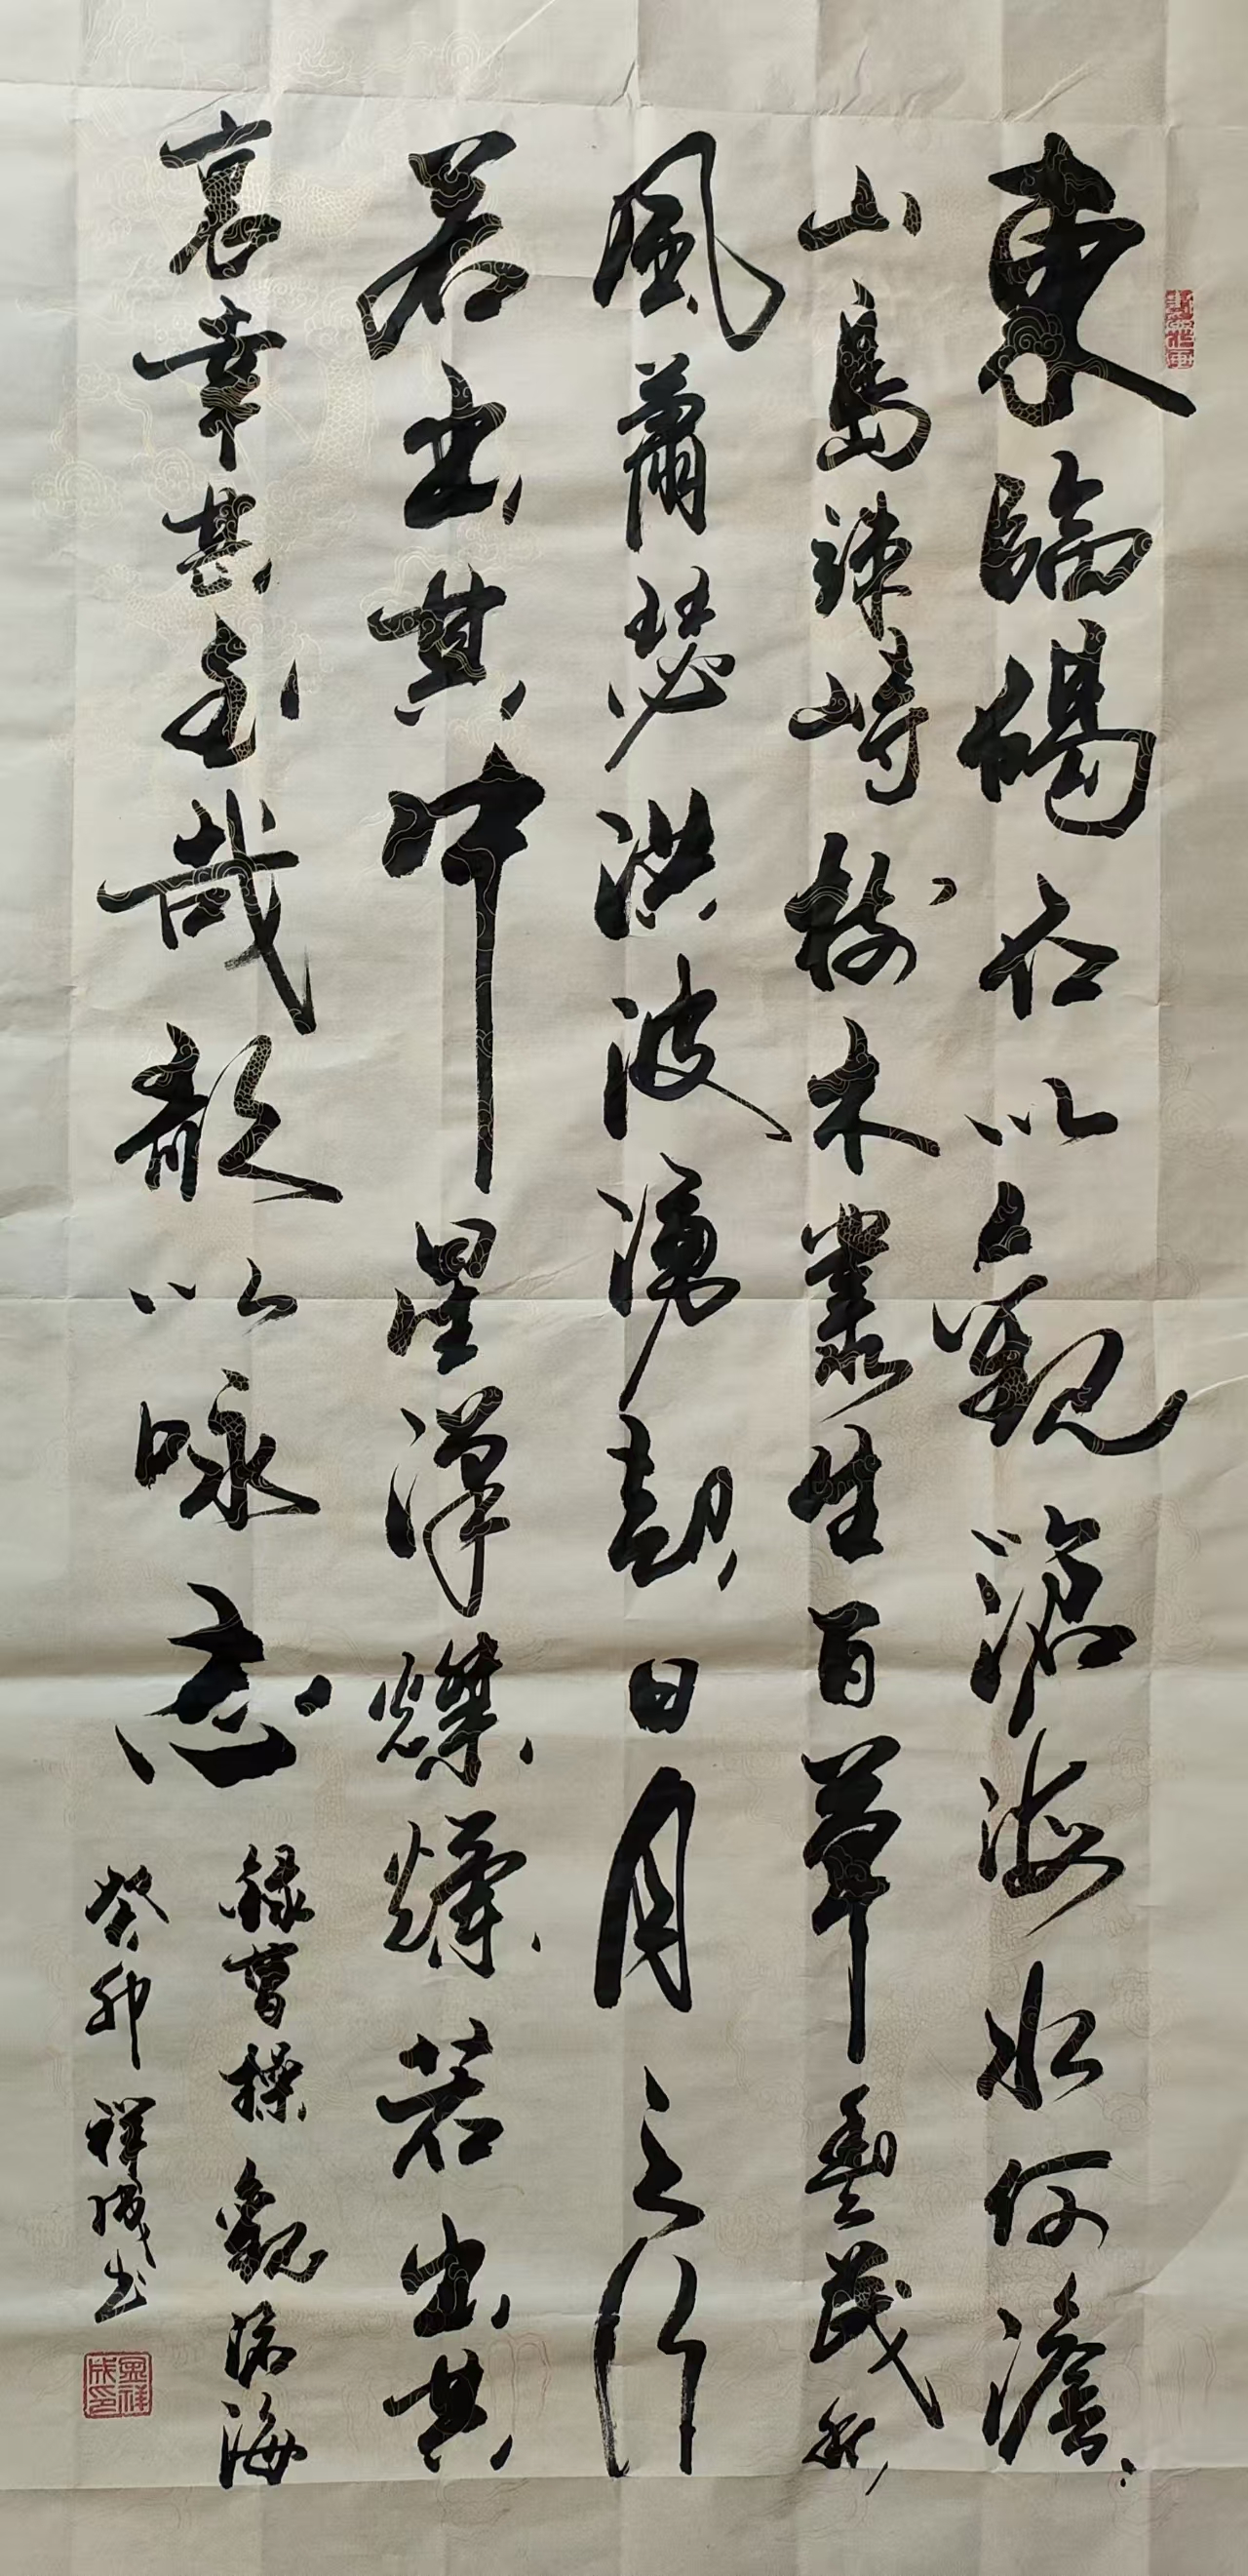 東臨碣石以觀滄海水何澹〻
山島竦峙樹木叢生百草豐茂秋
風蕭瑟洪波湧起日月之行
若出其中星漢燦爛若出其
裏幸甚至哉歌以咏志
録曹操觀滄海
癸卯祥成书